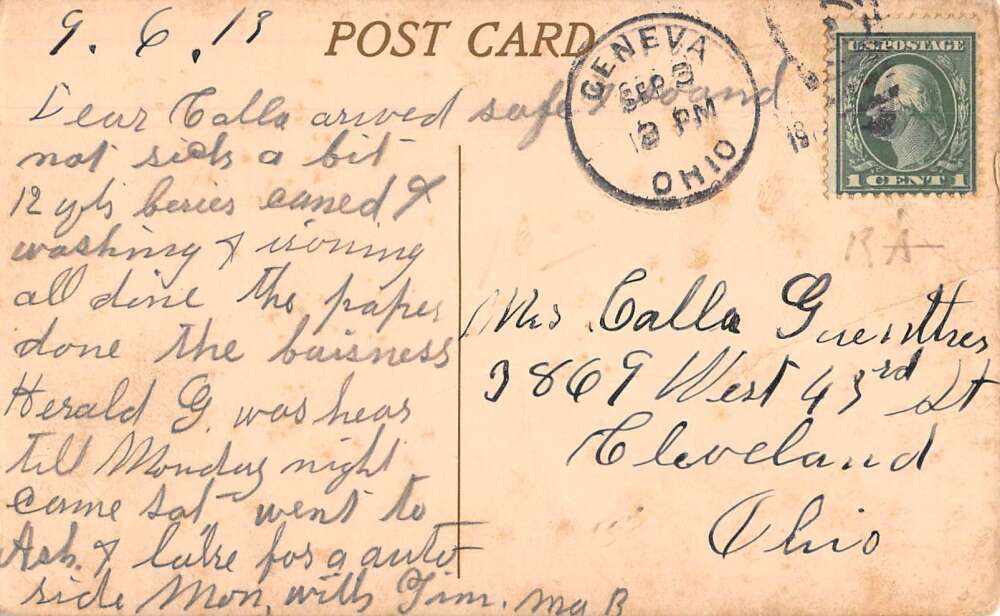 9. 6. 13
POST CARD
GENEVA
SEP
PM
OHIO
19
U.S. POSTAGE
1 CENT 1
Dear Calla arived safe and
not sick a bit
12 qts beries caned &
washing & ironing
all done the paper
done the buisness
Herald G. was hear
till Monday night
came sat went to
Ash. & lake for a auto
ride Mon. with Jim. Ma B
RA
Mrs Calla Guenther
3869 West 43rd St
Cleveland
Ohio